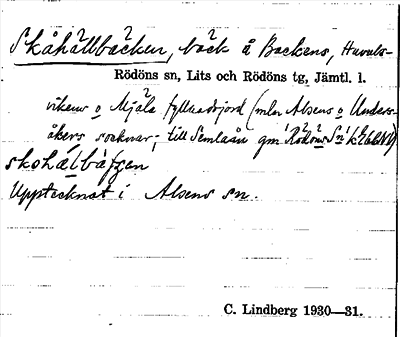 Skåhällbäcken, bäck å Backens, Huvuls-
Rödöns sn, Lits och Rödöns tg, Jämtl. l.
vikens o Mjäla fyllnadsjord (mlm Alsens o Unders-
åkers socknar; till Semlaån gm Rödöns Sn
skohálbäƒƷen
Upptecknat i Alsens sn.
C. Lindberg 1930—31.